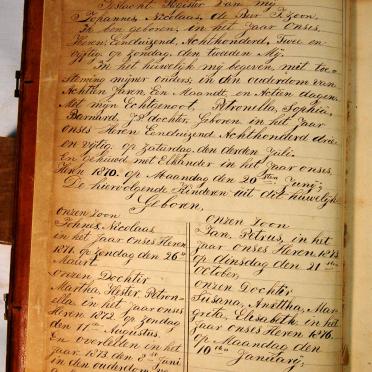 Geslacht Register van mij
Johannes, Nicolaas, de Beer J. zoon.
Ik ben geboren, in het Jaar Onses,
Heren, Eenduizend, Achthonderd, Twee en
vijftig op Zondag, den tweeden Mij,
En in het huwelijk mij begeven, met toe
steming mijner ouders, in den ouderdom van
Achtien Jaren, Een Maandt, en Actien dagen,
Met mijn Echtgenoot, Petronella, Sophia,
Barnard, JP dochter, Geboren in het Jaar
onses Heren Eenduizend Achthonderd drie
en vijtig, op zaturdag, den derden Juli.
En Gehuwd, met Elkander in het Jaar onses,
Heren 1870. op Maandag den 20sten Junij,
De hiervolgende Kinderen uit die huwelijk
Geboren,
Onzen Zoon
Johns, Nicolaas
in het Jaar onses Heren
1871. op Zondag den 26n
Maart.
Onzen Dochter
Martha, Hester, Petron-
ella, in het Jaar onses
Heren 1872. op Zondag
den 11de Augustus.
En overleden in het
Jaar, 1873. den Junij
in den ouderdom
Onzen Zoon
Jan, Petrus, in het
Jaar Onses Heren, 187
op dinsdag den 21ste
October,
Onzen Dochter
Susana, Anettha, Mar
Greta, Elisabeth, in het
Jaar onses Heren 1876.
op Maandag den
10de Januarij,